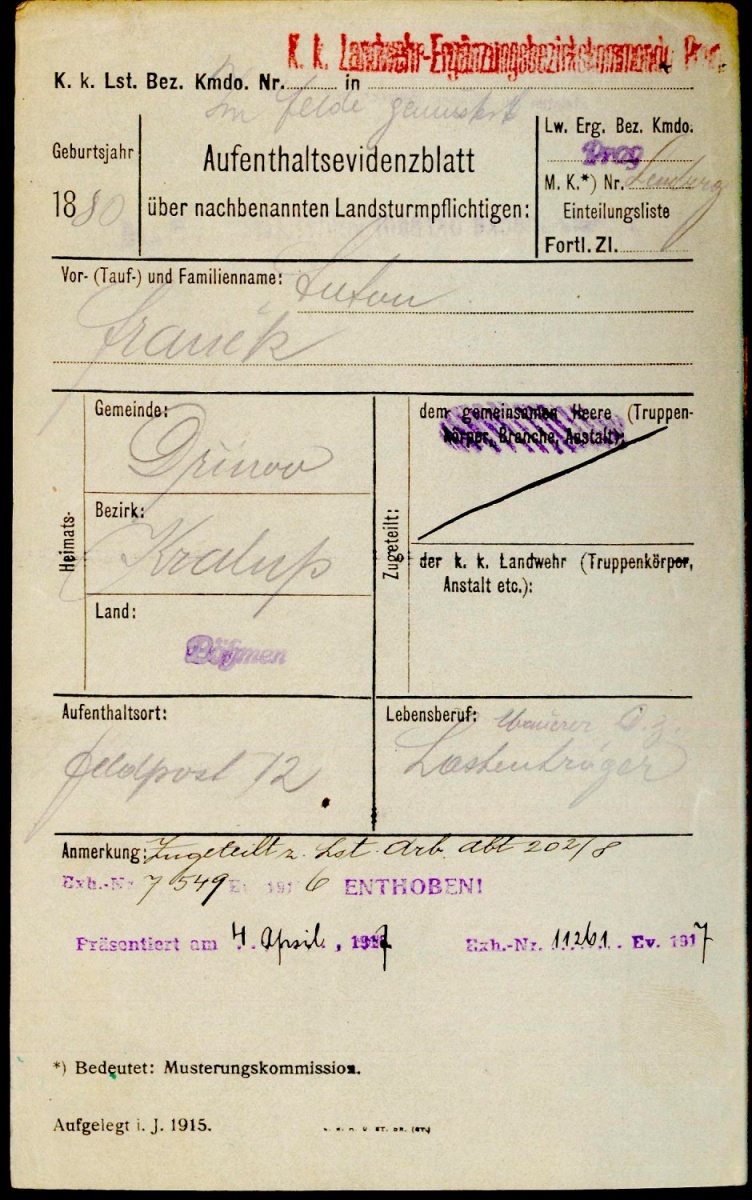 K. k. Landwehr-Ergänzungsbezirkskommando
K. k. Lst. Bez. Kmdo. Nr. in
Im Felde gemustert
Geburtsjahr
1880
Aufenthaltsevidenzblatt
über nachbenannten Landsturmpflichtigen:
Lw. Erg. Bez. Kmdo.
Prag
M. K.*) Nr. Lemberg
Einteilungsliste
Fortl. Zl.
Vor- (Tauf-) und Familienname: Anton
Franěk
Heimats-
Gemeinde:
Dřinov
Bezirk:
Kralup
Land:
Böhmen
Zugeteilt:
dem gemeinsamen Heere (Truppen-
körper, Branche, Anstalt):
der k. k. Landwehr (Truppenkörper,
Anstalt etc.):
Aufenthaltsort:
Feldpost 72
Lebensberuf: Maurer
Lastenträger
Anmerkung: Zugeteilt z. Lst. Arb. Abt 202/8
Exh.-Nr 7549 Ev. 1916 ENTHOBEN!
Präsentiert am 4. April, 1917
Exh.-Nr. 11261 Ev. 1917
*) Bedeutet: Musterungskommission.
Aufgelegt i. J. 1915.